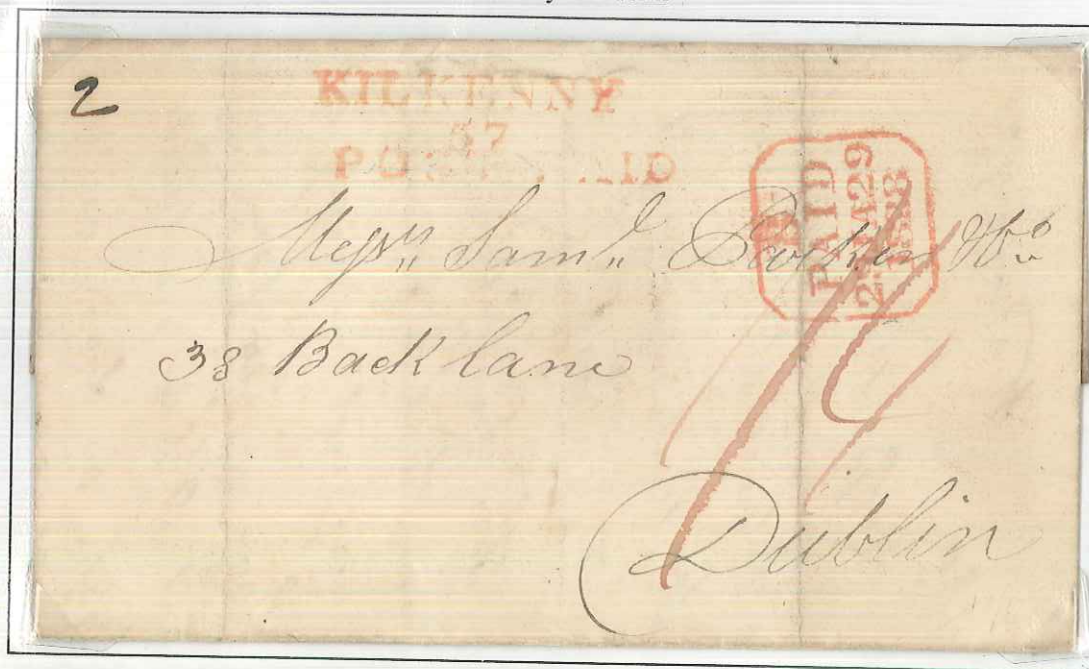 2
KILKENNY
57
POST PAID
PAID
2 JA29
1838
Messrs Saml
38 Back lane
Dublin